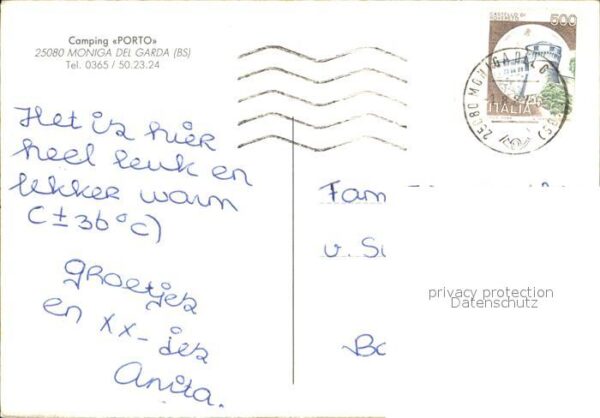 Camping «PORTO»
25080 MONIGA DEL GARDA (BS)
Tel. 0365 / 50.23.24
Het is hier
heel leuk en
lekker warm
(± 36°C)
groetjes
en xx-jes
Anita.
CASTELLO DI
ROVERETO
500
ITALIA
25080 MONIGA DEL G
Fam
v. S
privacy protection
Datenschutz